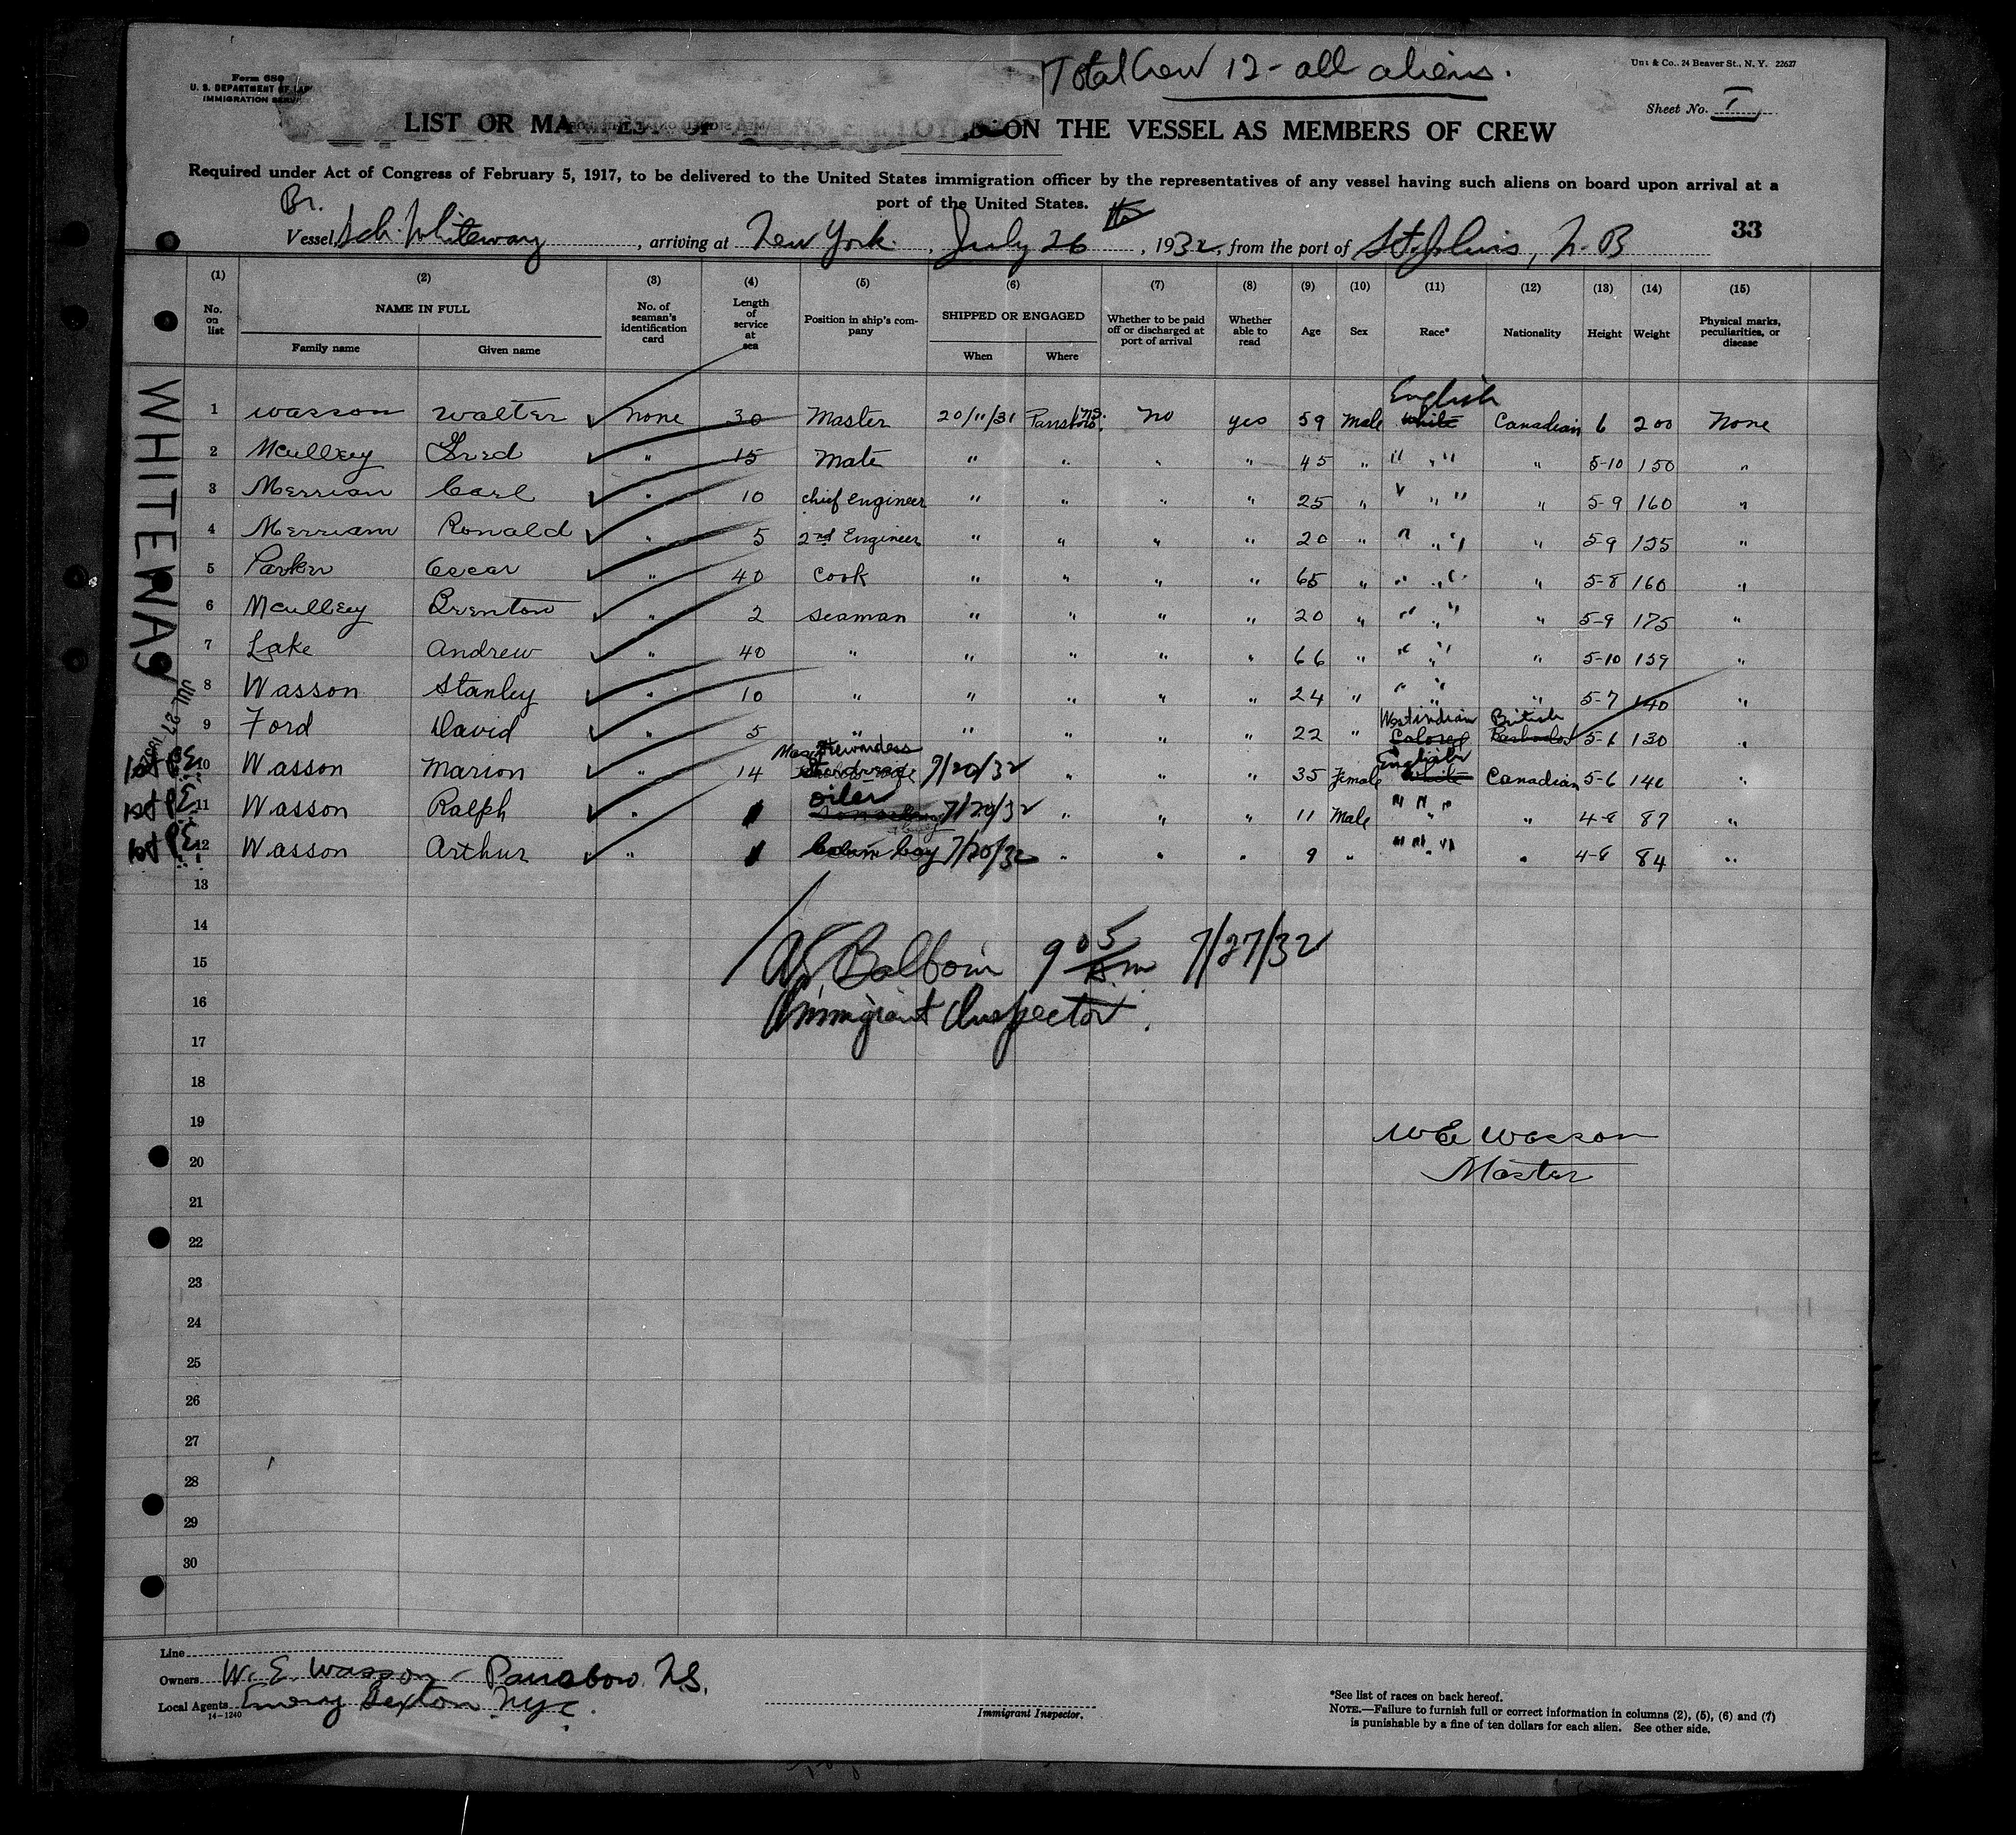 Total Crew 12 - all aliens.
Form 680
U. S. DEPARTMENT OF LABOR
IMMIGRATION SERVICE
24 Beaver St., N. Y. 22627
Sheet No. I
LIST OR MANIFEST OF ALIENS EMPLOYED ON THE VESSEL AS MEMBERS OF CREW
Required under Act of Congress of February 5, 1917, to be delivered to the United States immigration officer by the representatives of any vessel having such aliens on board upon arrival at a
port of the United States.
Br.
Vessel Sch. Whiteway, arriving at New York, July 26th, 1932, from the port of St Johns, N. B
33
(1) (2) (3) (4) (5) (6) (7) (8) (9) (10) (11) (12) (13) (14) (15)
No. on list NAME IN FULL Family name Given name No. of seaman's identification card Length of service at sea Position in ship's company SHIPPED OR ENGAGED When Where Whether to be paid off or discharged at port of arrival Whether able to read Age Sex Race* Nationality Height Weight Physical marks, peculiarities, or disease
WHITEWAY
JUL 27 1932
English
1 Wasson Walter None 30 Master 20/11/31 Parrsboro, NS. No yes 59 Male White Canadian 6 200 None
2 McCulley Fred " 15 Mate " " " " 45 " " " " 5-10 150 "
3 Merriam Carl " 10 chief Engineer " " " " 25 " " " " 5-9 160 "
4 Merriam Ronald " 5 2nd Engineer " " " " 20 " " " " 5-9 155 "
5 Parker Oscar " 40 Cook " " " " 65 " " " " 5-8 160 "
6 McCulley Brenton " 2 Seaman " " " " 20 " " " " 5-9 175 "
7 Lake Andrew " 40 " " " " " 66 " " " " 5-10 159 "
8 Wasson Stanley " 10 " " " " " 24 " " " " 5-7 140 "
West indian British
9 Ford David " 5 " " " " " 22 " Colored Barbados 5-6 130 "
Stewardess English
10 Wasson Marion " 14 7/20/32 " " " 35 Female White Canadian 5-6 146 "
oiler
11 Wasson Ralph " 1 7/20/32 " " " 11 Male " " " " 4-8 87 "
12 Wasson Arthur " 1 Cabin boy 7/20/32 " " " 9 " " " " " 4-8 84 "
13
14
15
Balboin 9 05 A.m 7/27/32
16
Immigrant Inspector.
17
18
19
W E Wasson
20
Master
21
22
23
24
25
26
27
28
29
30
Line
Owners W. E. Wasson - Parrsboro. N.S.
Local Agents Emery Sexton N.Y.C.
14-1240
Immigrant Inspector.
*See list of races on back hereof.
NOTE.—Failure to furnish full or correct information in columns (2), (5), (6) and (7)
is punishable by a fine of ten dollars for each alien. See other side.